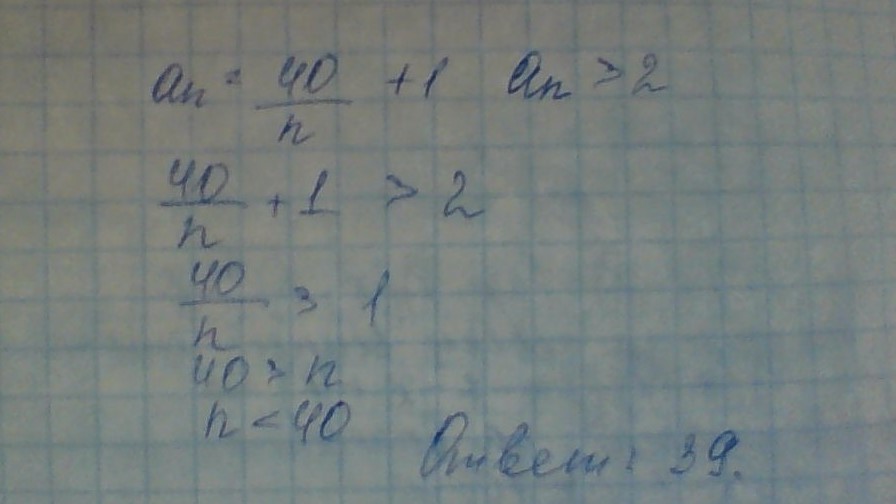 aₙ = 40/n + 1 aₙ > 2
40/n + 1 > 2
40/n > 1
40 > n
n < 40
Ответ: 39.